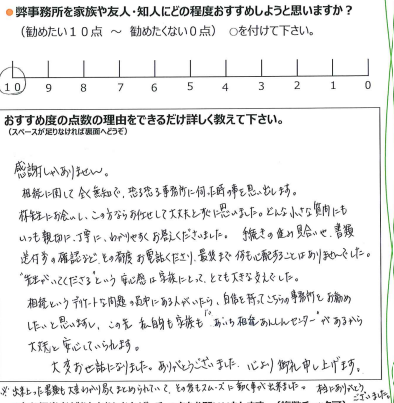 ●弊事務所を家族や友人・知人にどの程度おすすめしようと思いますか?
(勧めたい10点 ～ 勧めたくない0点) ○を付けて下さい。
10 9 8 7 6 5 4 3 2 1 0
おすすめ度の点数の理由をできるだけ詳しく教えて下さい。
(スペースが足りなければ裏面へどうぞ)
感謝しかありません。
相続に関して全く無知で、恐る恐る事務所に伺った時の事を思い出します。
先生にお会いし、この方ならお任せして大丈夫とすぐに思いました。どんな小さな質問にも
いつも親切に、丁寧に、わかりやすくお答えくださいました。手続きの進み具合や、書類
送付等の確認など、その都度お電話くださり、最後まで何も心配することはありませんでした。
"先生がいてくださる"という安心感は家族にとって、とても大きな支えでした。
相続というデリケートな問題の最中にある人がいたら、自信を持ってこちらの事務所をお勧め
したいと思いますし、この先私自身も家族も"あいち相続あんしんセンター"があるから
大丈夫と安心していられます。
大変お世話になりました。ありがとうございました。心より御礼申し上げます。
※出来上った書類も大変わかり易くまとめられていて、その後もスムーズに動く事が出来ました。本当にありがとう
ございました。